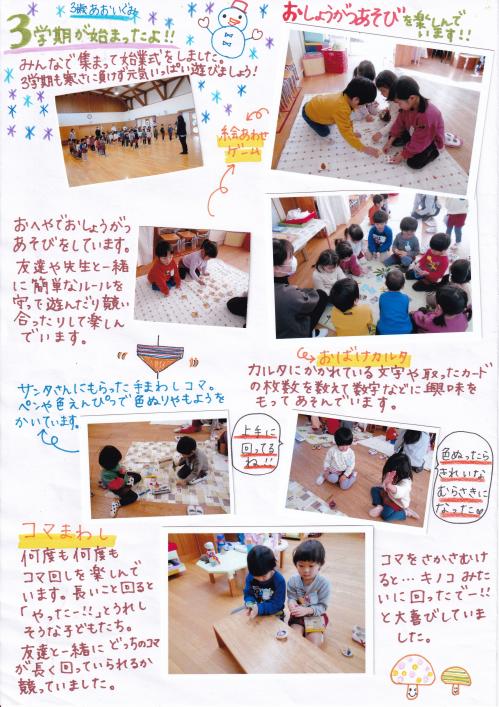 3歳あおいぐみ
3学期が始まったよ!!
みんなで集まって始業式をしました。
3学期も寒さに負けず元気いっぱい遊びましょう!
おしょうがつあそびを楽しんで
います!!
絵あわせ
ゲーム
おへやでおしょうがつ
あそびをしています。
友達や先生と一緒
に簡単なルールを
守って遊んだり競い
合ったりして楽しん
でいます。
おばけカルタ
カルタにかかれている文字や取ったカード
の枚数を数えて数字などに興味を
もってあそんでいます。
サンタさんにもらった手まわしコマ。
ペンや色えんぴつで色ぬりやもようを
かいています。
上手に
回ってる
ね!!
色ぬったら
きれいな
むらさきに
なったこ
コマまわし
何度も何度も
コマ回しを楽しんで
います。長いこと回ると
「やったー!!」とうれし
そうな子どもたち。
友達と一緒にどっちのコマ
が長く回っていられるか
競っていました。
コマをさかさむけ
ると…キノコみた
いに回ったでー!!
と大喜びしていま
した。